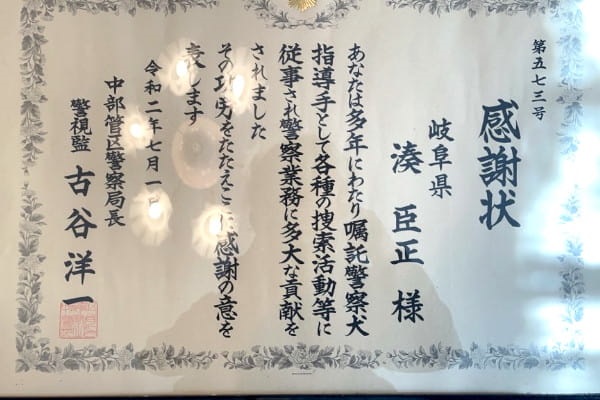 第五七三号
感謝状
岐阜県
湊 臣正 様
あなたは多年にわたり嘱託警察犬
指導手として各種の捜索活動等に
従事され警察業務に多大な貢献を
されました
その功労をたたえここに感謝の意を
表します
令和二年七月一日
中部管区警察局長
警視監 古谷洋一